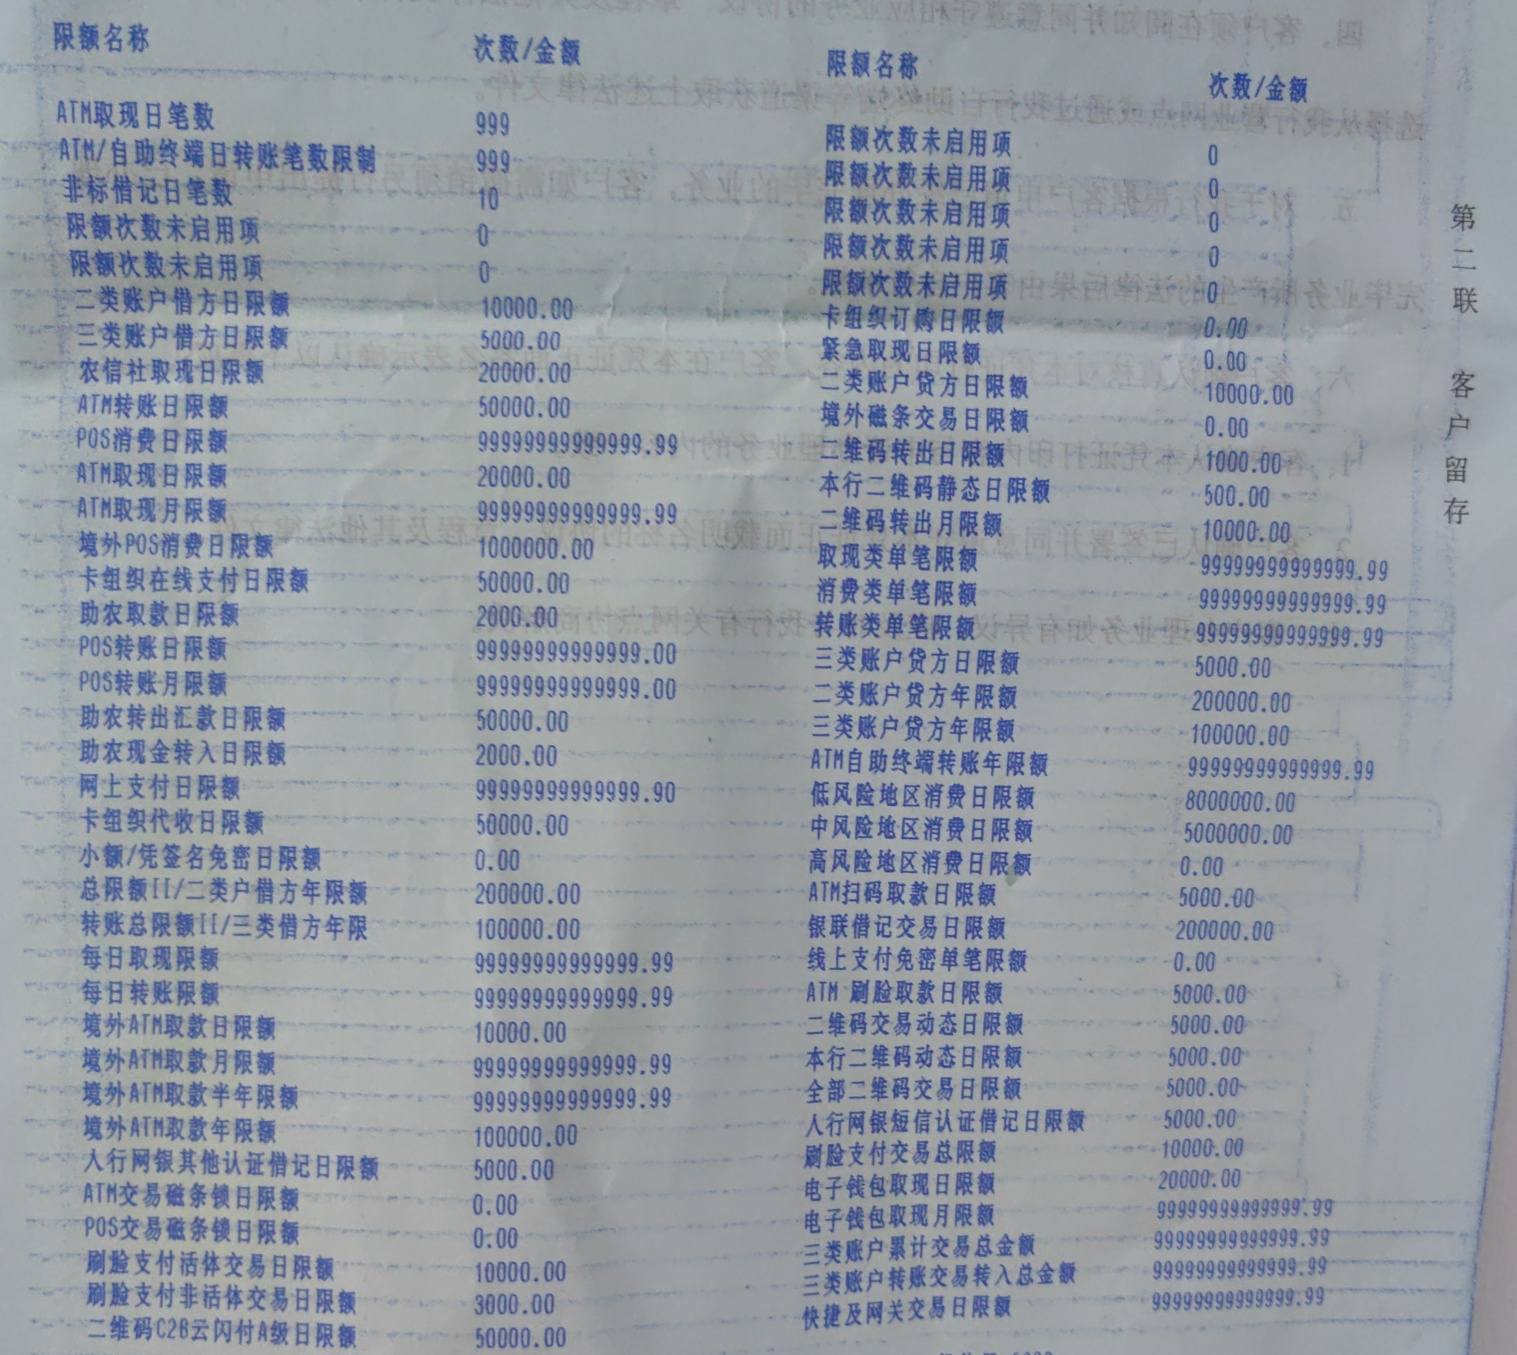 限额名称 次数/金额
ATM取现日笔数 999
ATM/自助终端日转账笔数限制 999
非标借记日笔数 10
限额次数未启用项 0
限额次数未启用项 0
二类账户借方日限额 10000.00
三类账户借方日限额 5000.00
农信社取现日限额 20000.00
ATM转账日限额 50000.00
POS消费日限额 99999999999999.99
ATM取现日限额 20000.00
ATM取现月限额 99999999999999.99
境外POS消费日限额 1000000.00
卡组织在线支付日限额 50000.00
助农取款日限额 2000.00
POS转账日限额 99999999999999.00
POS转账月限额 99999999999999.00
助农转出汇款日限额 50000.00
助农现金转入日限额 2000.00
网上支付日限额 99999999999999.90
卡组织代收日限额 50000.00
小额/凭签名免密日限额 0.00
总限额II/二类户借方年限额 200000.00
转账总限额II/三类借方年限 100000.00
每日取现限额 99999999999999.99
每日转账限额 99999999999999.99
境外ATM取款日限额 10000.00
境外ATM取款月限额 99999999999999.99
境外ATM取款半年限额 99999999999999.99
境外ATM取款年限额 100000.00
人行网银其他认证借记日限额 5000.00
ATM交易磁条锁日限额 0.00
POS交易磁条锁日限额 0.00
刷脸支付活体交易日限额 10000.00
刷脸支付非活体交易日限额 3000.00
二维码C2B云闪付A级日限额 50000.00
限额名称 次数/金额
限额次数未启用项 0
限额次数未启用项 0
限额次数未启用项 0
限额次数未启用项 0
限额次数未启用项 0
卡组织订购日限额 0.00
紧急取现日限额 0.00
二类账户贷方日限额 10000.00
境外磁条交易日限额 0.00
二维码转出日限额 1000.00
本行二维码静态日限额 500.00
二维码转出月限额 10000.00
取现类单笔限额 99999999999999.99
消费类单笔限额 99999999999999.99
转账类单笔限额 99999999999999.99
三类账户贷方日限额 5000.00
二类账户贷方年限额 200000.00
三类账户贷方年限额 100000.00
ATM自助终端转账年限额 99999999999999.99
低风险地区消费日限额 8000000.00
中风险地区消费日限额 5000000.00
高风险地区消费日限额 0.00
ATM扫码取款日限额 5000.00
银联借记交易日限额 200000.00
线上支付免密单笔限额 0.00
ATM 刷脸取款日限额 5000.00
二维码交易动态日限额 5000.00
本行二维码动态日限额 5000.00
全部二维码交易日限额 5000.00
人行网银短信认证借记日限额 5000.00
刷脸支付交易总限额 10000.00
电子钱包取现日限额 20000.00
电子钱包取现月限额 99999999999999.99
三类账户累计交易总金额 99999999999999.99
三类账户转账交易转入总金额 99999999999999.99
快捷及网关交易日限额 99999999999999.99
第二联 客户留存